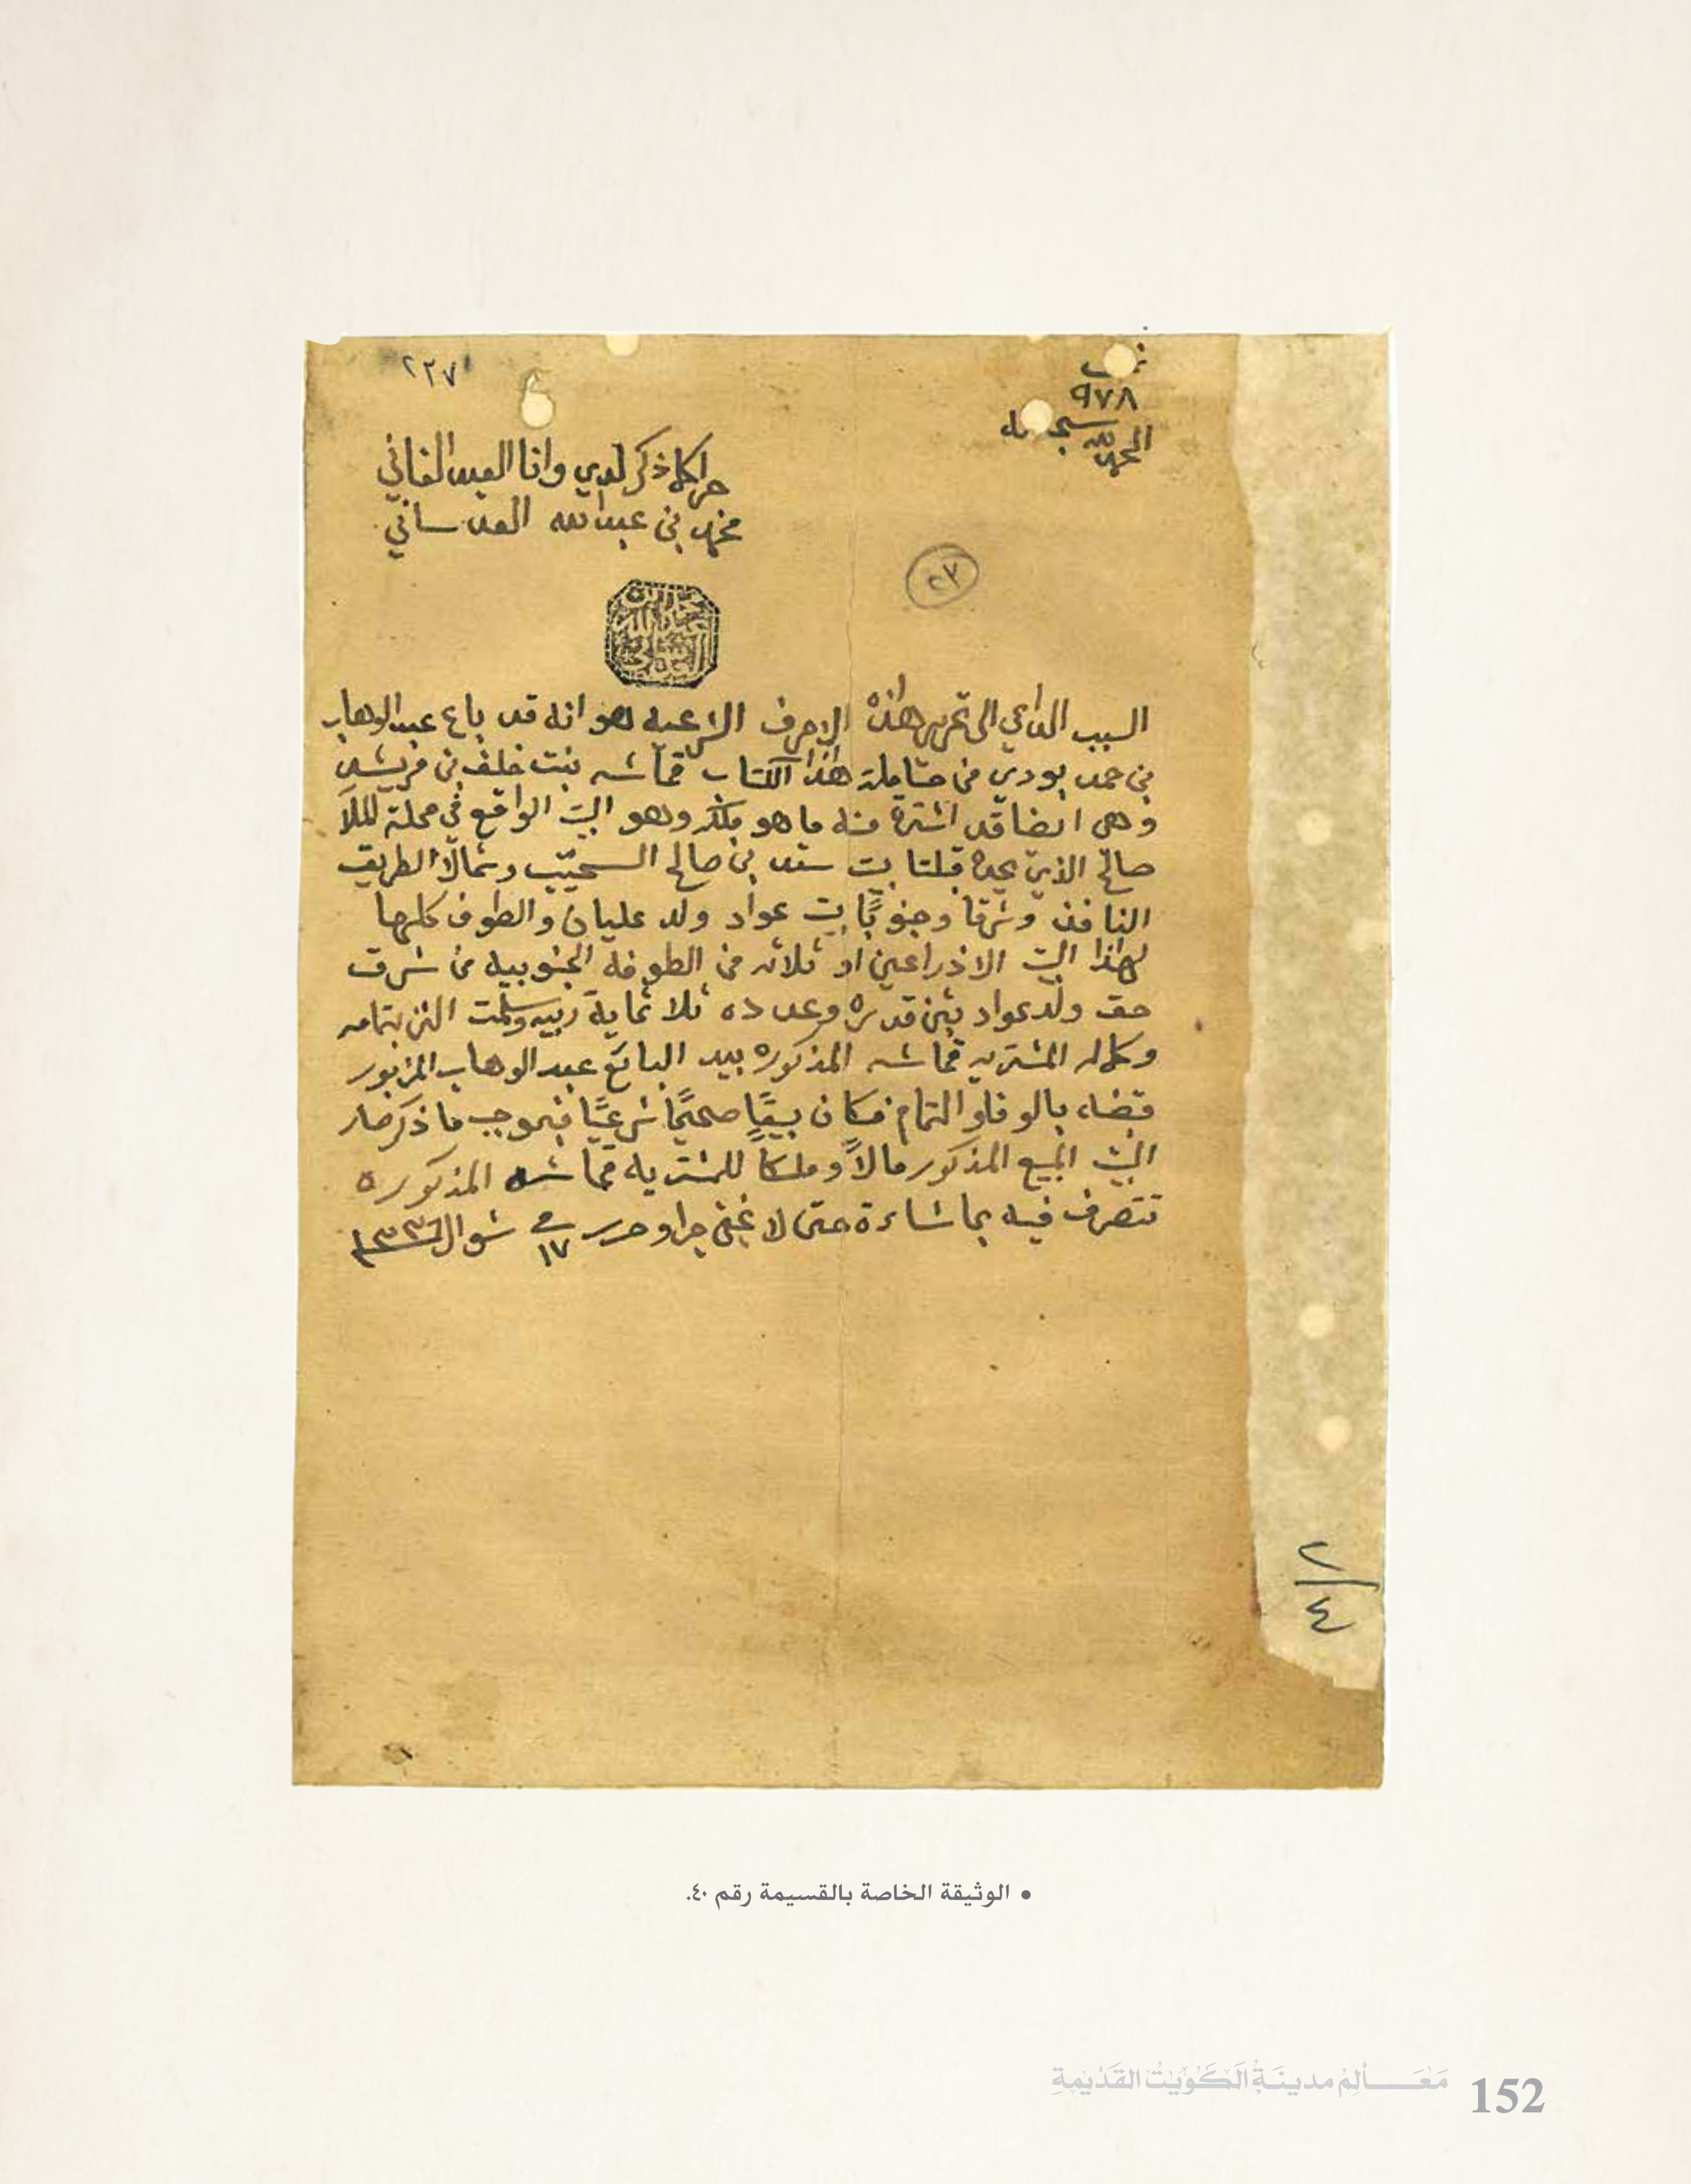 ٢٢٧
٩٧٨
الحمد لله سبحانه
جرا كلما ذكر لدي وانا العبد الفاني
محمد بن عبدالله العدساني
٢٧
السبب الداعي الى تحرير هذه الاحرف الشرعيه هو انه قد باع عبدالوهاب
بن حمد بودي من حاملة هذا الكتاب قماشه بنت خلف بن فريشد
وهي ايضا قد اشترة منه ما هو ملكه وهو البيت الواقع في محلة الملا
صالح الذي يحده قبلتا بيت سند بن صالح السحيب وشمالاً الطريق
النافذ وشرقا وجنوبًا بيت عواد ولد عليان والطوف كلها
لهذا البيت الا ذراعين او ثلاثه من الطوفة الجنوبيه من شرق
حق ولد عواد بثمن قدره وعدده ثلاثماية ربيه وسلمت الثمن بتمامه
وكماله المشتريه قماشه المذكوره بيد البائع عبدالوهاب المزبور
قبضه بالوفا والتمام فكان بيعًا صحيحًا شرعيًا فبموجب ما ذكر صار
البيت المبيع المذكور مالاً وملكاً للمشتريه قماشه المذكورة
تتصرف فيه بما شاءة حتى لا يخفى جرا وحرر في ١٧ شوال ١٣٣٦
٢/٤
• الوثيقة الخاصة بالقسيمة رقم ٤٠.
مَعَالِمُ مدينَةِ الكُوَيْت القَدْيمَةِ 152